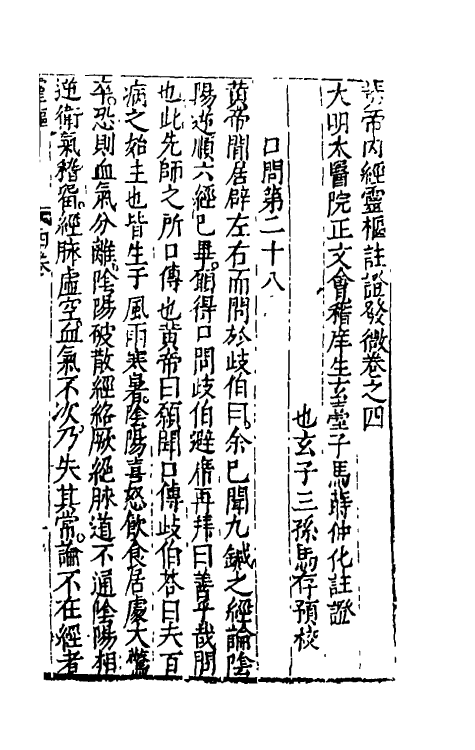 黃帝內經靈樞註證發微卷之四
大明太醫院正文會稽庠生玄臺子馬蒔仲化註證
也玄子三孫馬存預校
口問第二十八
黃帝閒居辟左右而問於歧伯曰余已聞九鍼之經論陰
陽逆順六經已畢願得口問歧伯避席再拜曰善乎哉問
也此先師之所口傳也黃帝曰願聞口傳歧伯答曰夫百
病之始生也皆生于風雨寒暑陰陽喜怒飲食居處大驚
卒恐則血氣分離陰陽破散經絡厥絕脉道不通陰陽相
逆衛氣稽留經脉虛空血氣不次乃失其常論不在經者
靈樞 四卷 一